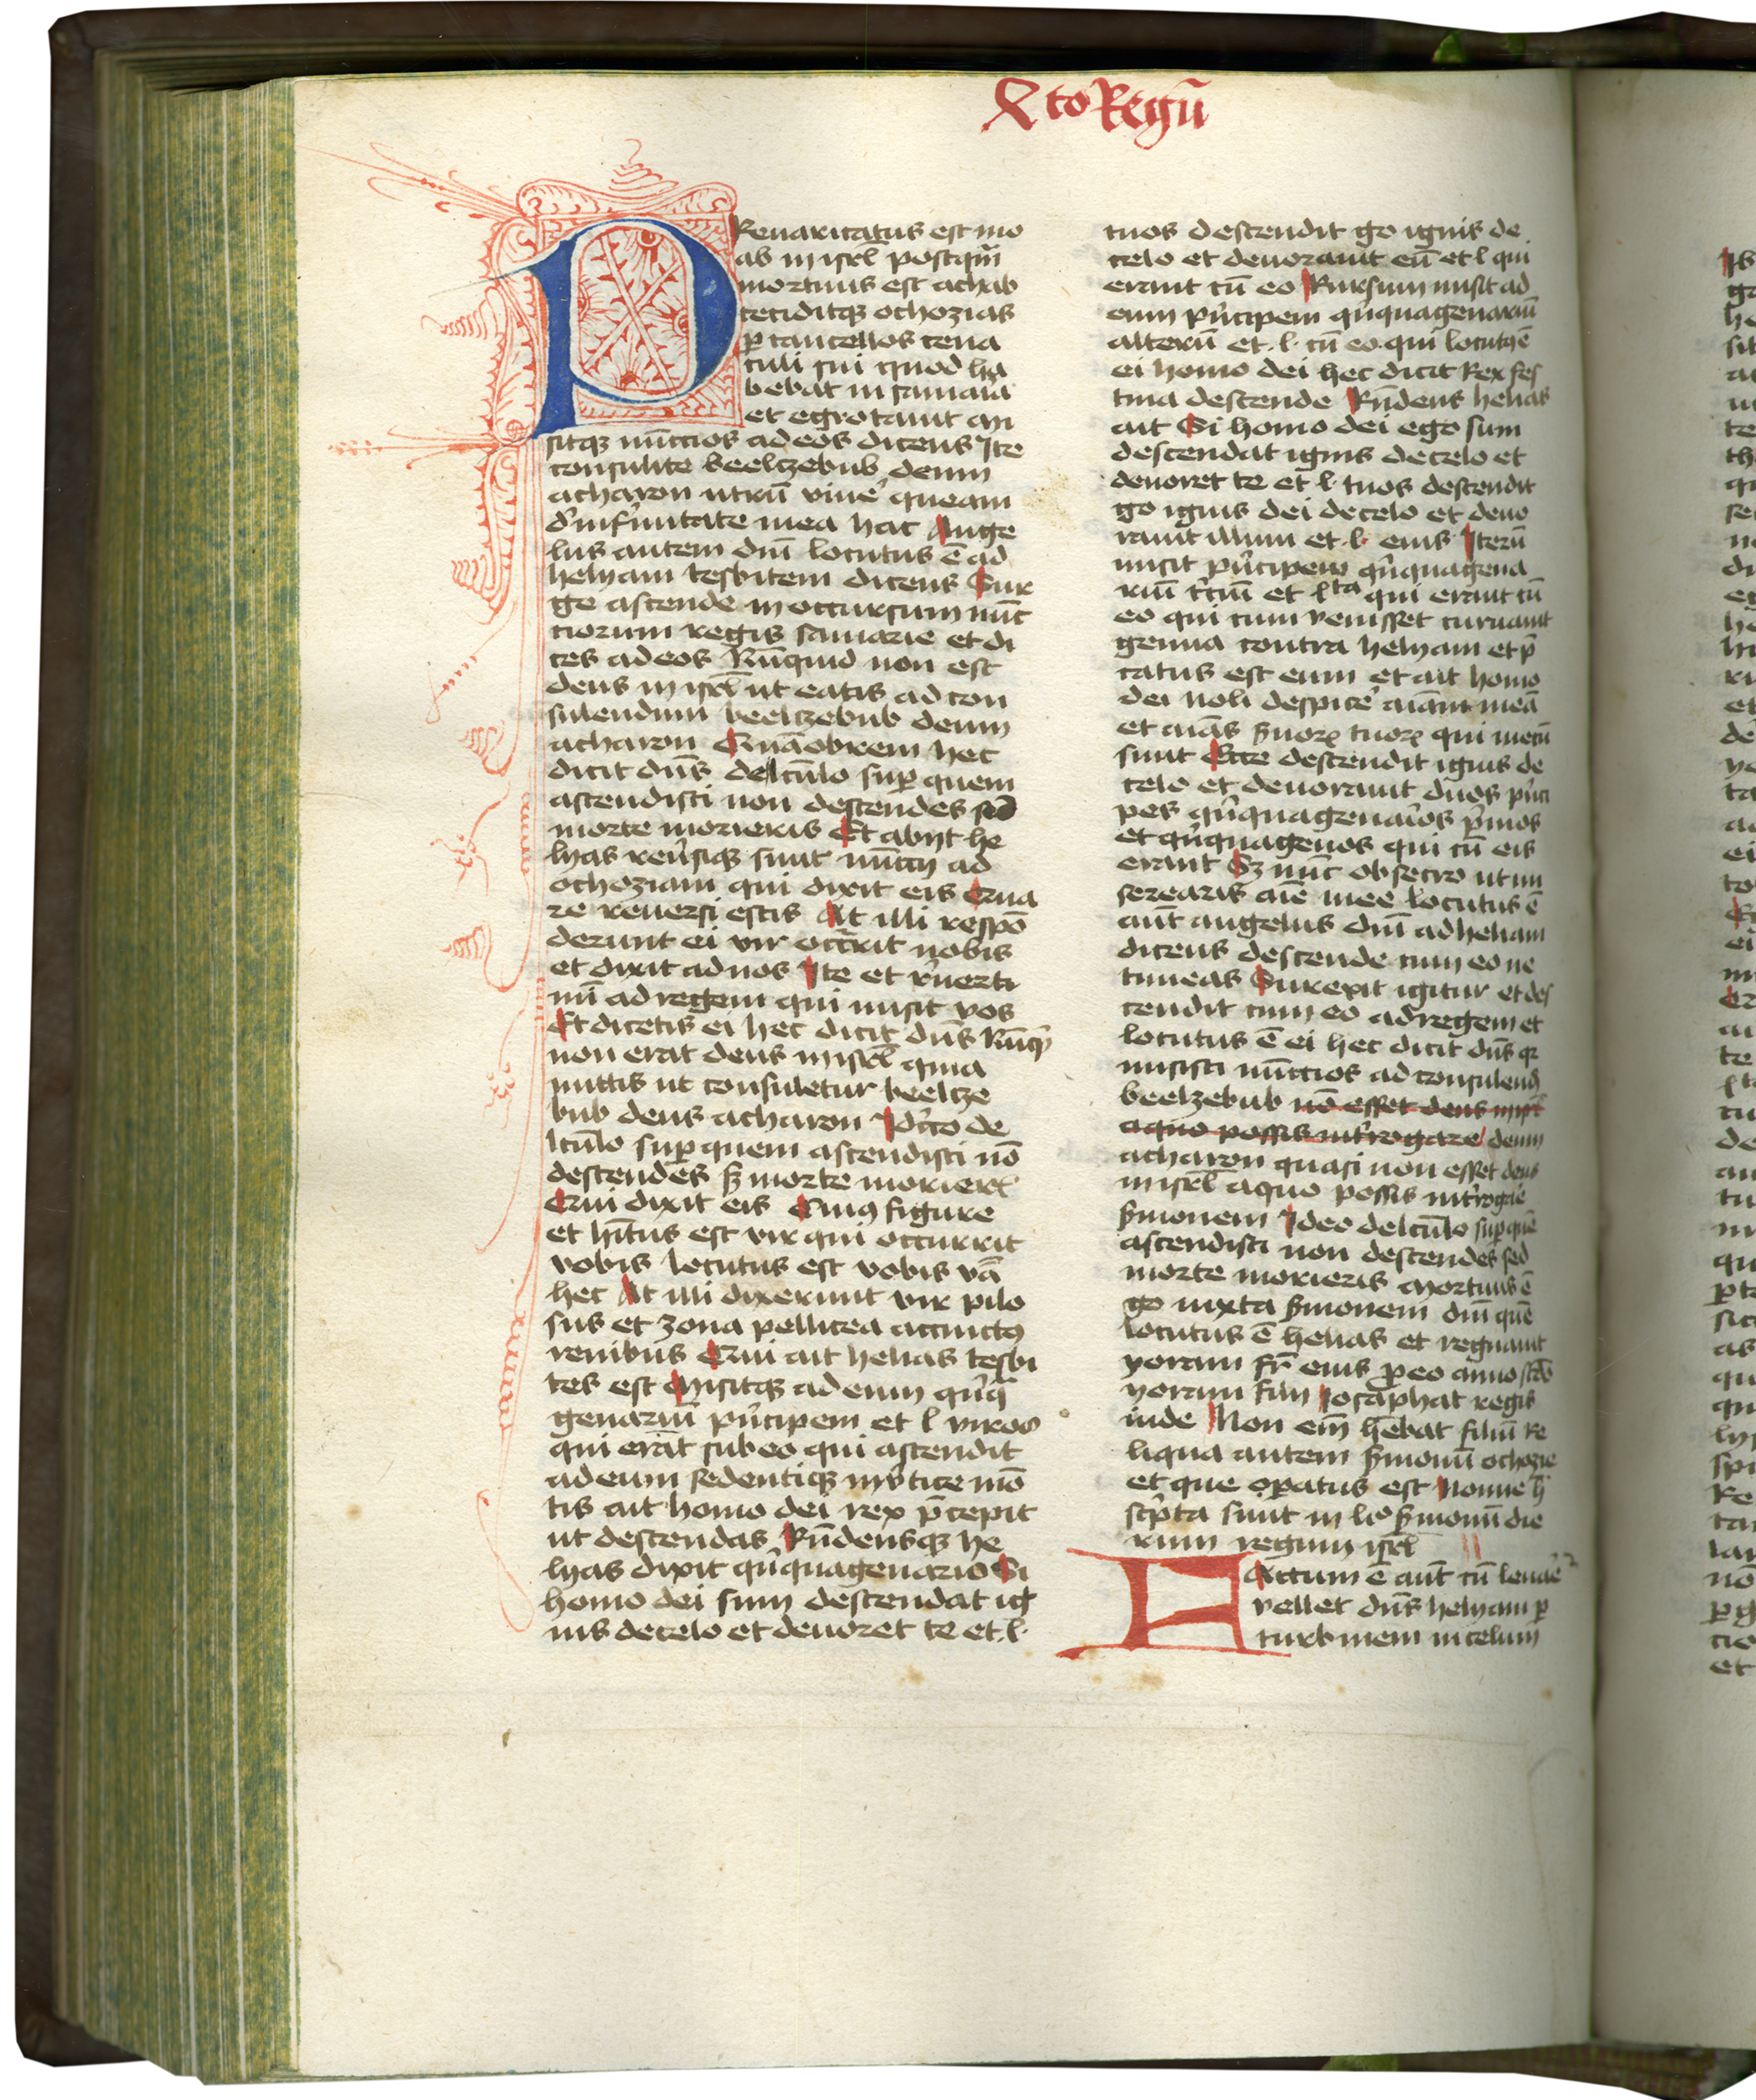 Xto Regū
PRevaricatus est mo
ab in isrl̄ postqm̄
mortuus est achab
ceciditqꝫ ochozias
ꝑ cancellos cena
culi sui quod ha
bebat in samaia
et egrotauit mi
sitqꝫ nūccios ad eos dicens Ite
consulite beelczebub deum
acharon utrū viue͛ queam
d͛ infirmitate mea hac Ange
lus autem dnī locutus ē ad
helyam tesbitem dicens Sur
ge ascende in occursum nūc
ciorum regis samarie et di
ces ad eos Nūquid non est
deus in isrl̄ ut eatis ad con
sulendum beelczebub deum
acharon Quāobrem hec
dicit dn̄s de lectūlo suꝑ quem
ascendisti non descendes sed
morte morieris Et abijt he
lyas reu͛siqꝫ sunt nūccij ad
ochoziam qui dixit eis Qua
re reuersi estis At illi respō
derunt ei vir occ͛rit nobis
et dixit ad nos Ite et r͛uerti
mī ad regem qui misit vos
Et dicetis ei hec dicit dn̄s Nūqͥ
non erat deus in isrl̄ quia
mittis ut consuletur beelcze
bub deus acharon Idc͛co de
lctūlo suꝑ quem ascendisti nō
descendes sꝫ morte morier͛
Qui dixit eis Cuiꝰ figure
et hītus est vir qui occurrit
vobis locutus est vobis v͛ā
hec At illi dixerunt vir pilo
sus et zona pellicea accinctꝰ
renibus Qui ait helias tesbi
tes est Misitqꝫ ad eum qͥnqͣ
genariū pͥncipem et l viros
qui erāt sub eo qui ascendit
ad eum sedentiqꝫ in v͛tice mō
tis ait homo dei rex p̄cepit
ut descendas Rn̄densqꝫ he
lyas dixit qͥnquagenario Si
homo dei sum descendat ig
nis de celo et deuoret te et .l.
tuos descendit go ignis de
celo et deuorauit eū et l qui
erant cū eo Rursum misit ad
eum pͥncipem qͥnquagenariū
alterū et .l. cū eo qui locutꝰ ē
ei homo dei hec dicit Rex fes
tina descende Rn̄dens helias
ait Si homo dei ego sum
descendat ignis de celo et
deuoret te et l. tuos descendit
go ignis dei de celo et deuo
rauit illum et .l. eius Iterū
misit pͥncipem qͥnquagena
riū t͛ciū et lta qui erant cū
eo qui cum venisset curuauit
genua contra helyam et p̄
catus est eum et ait homo
dei noli despice͛ aīam meā
et aīas s͛uorꝝ tuorꝝ qui mecū
sunt Ecce descendit ignis de
celo et deuorauit duos pͥnci
pes qͥnquagenaͥos pͥmos
et qͥnquagenos qui cū eis
erant Sꝫ nūc obsecro ut mi
serearis aīe mee locutus ē
aūt angelus dnī ad heliam
dicens descende cum eo ne
timeas Surexit igitur et des
cendit cum eo ad regem et
locutus ē ei hec dicit dn̄s qꝛ
misisti nūccios ad consulend
beelzebub nō esset deus in isrl̄
a quo possis int͛rogare deum
acharon quasi non esset deus
in isrl̄ a quo possis int͛rogare
s͛monem Ideo de lctūlo suꝑ quē
ascendisti non descendes sed
morte morieris Mortuus ē
go iuxta s͛monem dnī quē
locutus ē helias et regnauit
yoram fr̄ eius ꝓ eo anno scdō
yoram filij Iosaphat regis
iude Non em̄ hēbat filiū Re
liqua autem s͛monū ochozie
et que oꝑatus est Nonne h̄
scͥpta sunt in liͦ s͛monū die
rum regum isrl̄
FActum ē aūt cū leuae͛
vellet dn̄s helyam ꝑ
turbinem in celum